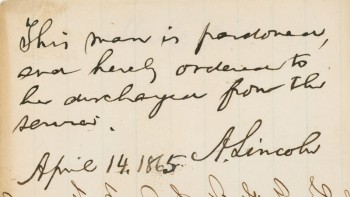 This man is pardoned,
and hereby ordered to
be discharged from the
service.
April 14, 1865. A. Lincoln